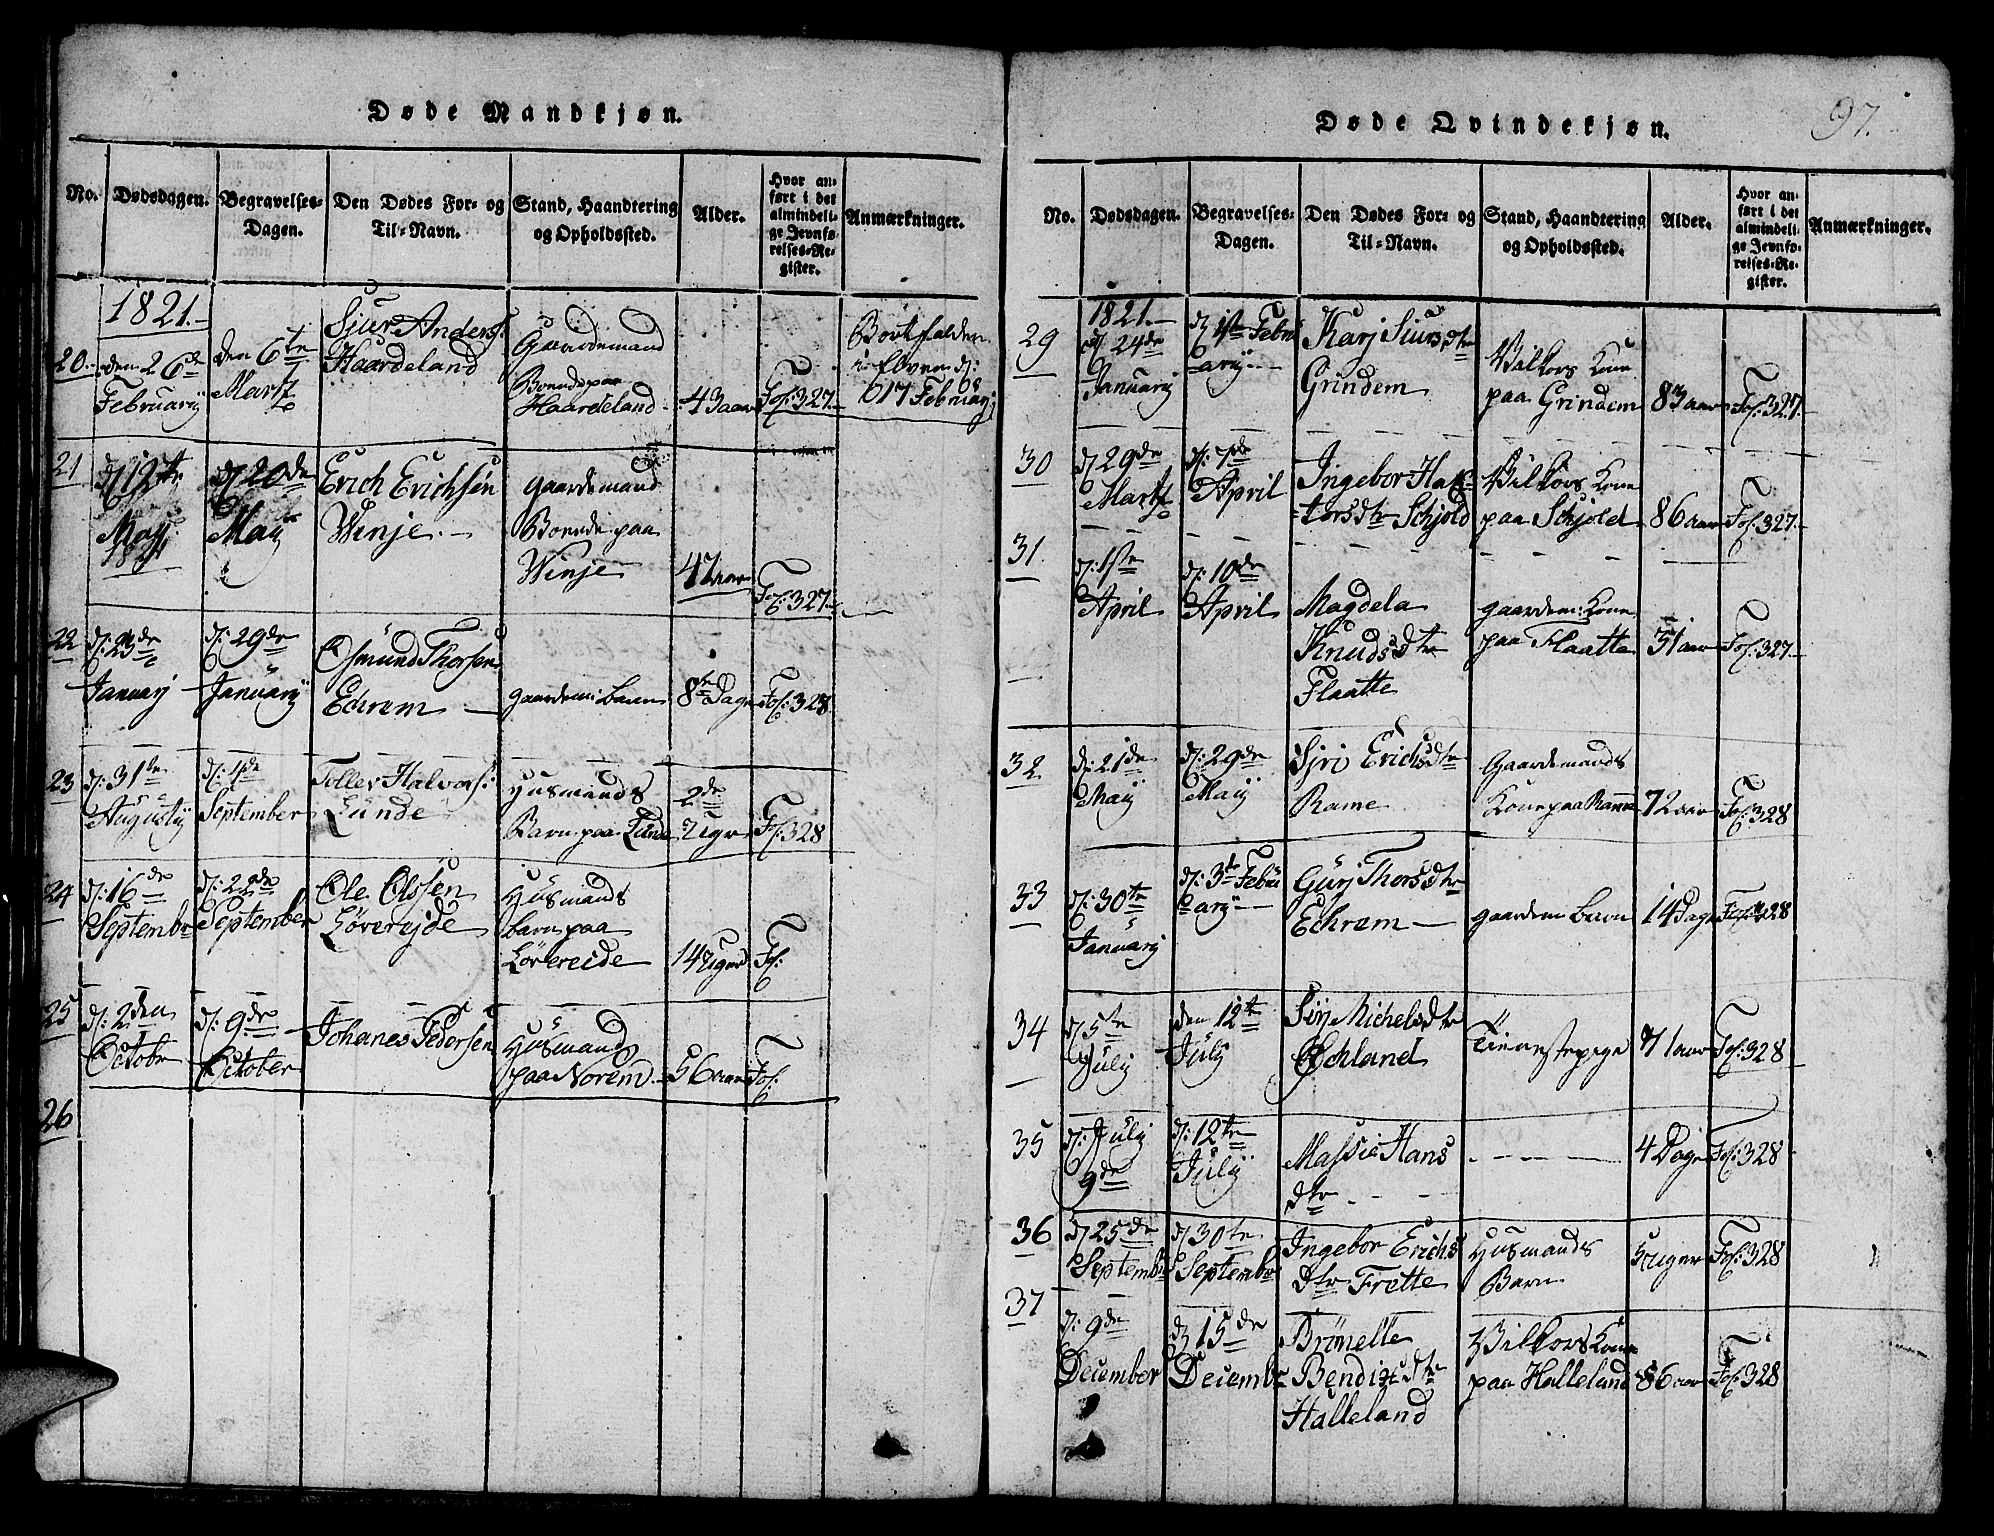 Døde Mandkjøn.
No.
Dødsdagen.
Begravelses-
Dagen.
Den Dødes For- og
Til-Navn.
Stand, Haandtering
og Opholdssted.
Alder.
Hvor an-
ført i det
almindeli-
ge Jevnfø-
relses-Re-
gister.
Anmærkninger.
1821.
20.
den 26de
Februarij
den 6te
Martz
Sjur Anders:
Haardeland
Gaardemand
Boendepaa
Haardeland
43 aar
Fol: 327.
Bortfalden
i Elven d:
17 Februarij
21
d: 12te
Maij
1821
d: 20de
Maij
Erich Erichsen
Winje.
gaardemand
Boende paa
Winje
47 aar
Fol: 327.
22
d: 23de
Januarj
d: 29de
Januarij
Osmund Thorsen
Echrem
gaardem: Barn
8te Dage
Fol: 328.
23
d: 31te
Augustij
d: 4de
September
Tollev Halvors:
Lunde
Husmands
Barn paa Lunde
2de
Uger
Fol: 328
24
d: 16de
Septembr
d: 22de
September
Ole Olssen
Lövereide
Husmands
barn paa
Lövereide
14 Uger
Fol:
25
d: 2den
Octobr
d: 9de
October
Johanes Pedersen
Husmand
paa Norem
56 aar
Fol:
26
Døde Qvindekjøn.
97.
No.
Dødsdagen.
Begravelses-
Dagen.
Den Dødes For- og
Til-Navn.
Stand, Haandtering
og Opholdssted.
Alder.
Hvor an-
ført i det
almindeli-
ge Jevnfø-
relses-Re-
gister.
Anmærkninger.
1821.
29
d: 24de
Januarij
d: 1ste Febru
arij
Karj Siursdtr
Grindem
Vilkors Kone
paa Grindem
83 aar
Fol: 327.
30
d: 29de
Martz
d: 7de
April
Ingebor Hal
torsdtr Schjold
Vilkors Kone
paa Schjold
86 aar
Fol: 327.
31.
d: 1ste
April
d: 10de
April
Magdela
Knudsdtr
Flaatte
gaardem: Kone
paa Flaatte
51 aar
Fol: 327.
32
d: 21de
Maij
d: 29de
Maij
Sjri Erichsdtr
Rame
Gaardemands
Kone paa Ramme
72 aar
Fol: 328
33
d: 30te
Januarij
d: 3te Febru
arij
Gurj Thorsdtr
Echrem
gaardem Barn
14 Dage
Fol: 328
34
d: 5te
Julij
den 12te
Julij
Sirj Michelsdtr
Öchland
Tienestepige
71 aar
Fol: 328
35
d: Julij
9de
d: 12te
Julij
Massie Hans
dtr
4 Dage
Fol: 328
36
d: 25de
Septembr
d: 30te
Septembr
Ingebor Erichs
dtr Frette
Husmands
Barn
Uger
Fol: 328
37
d: 9de
December
d: 15de
Decembr
Brönelle
Bendixdtr
Halleland
Vilkors Kone
paa Halleland
86 aar
Fol: 328